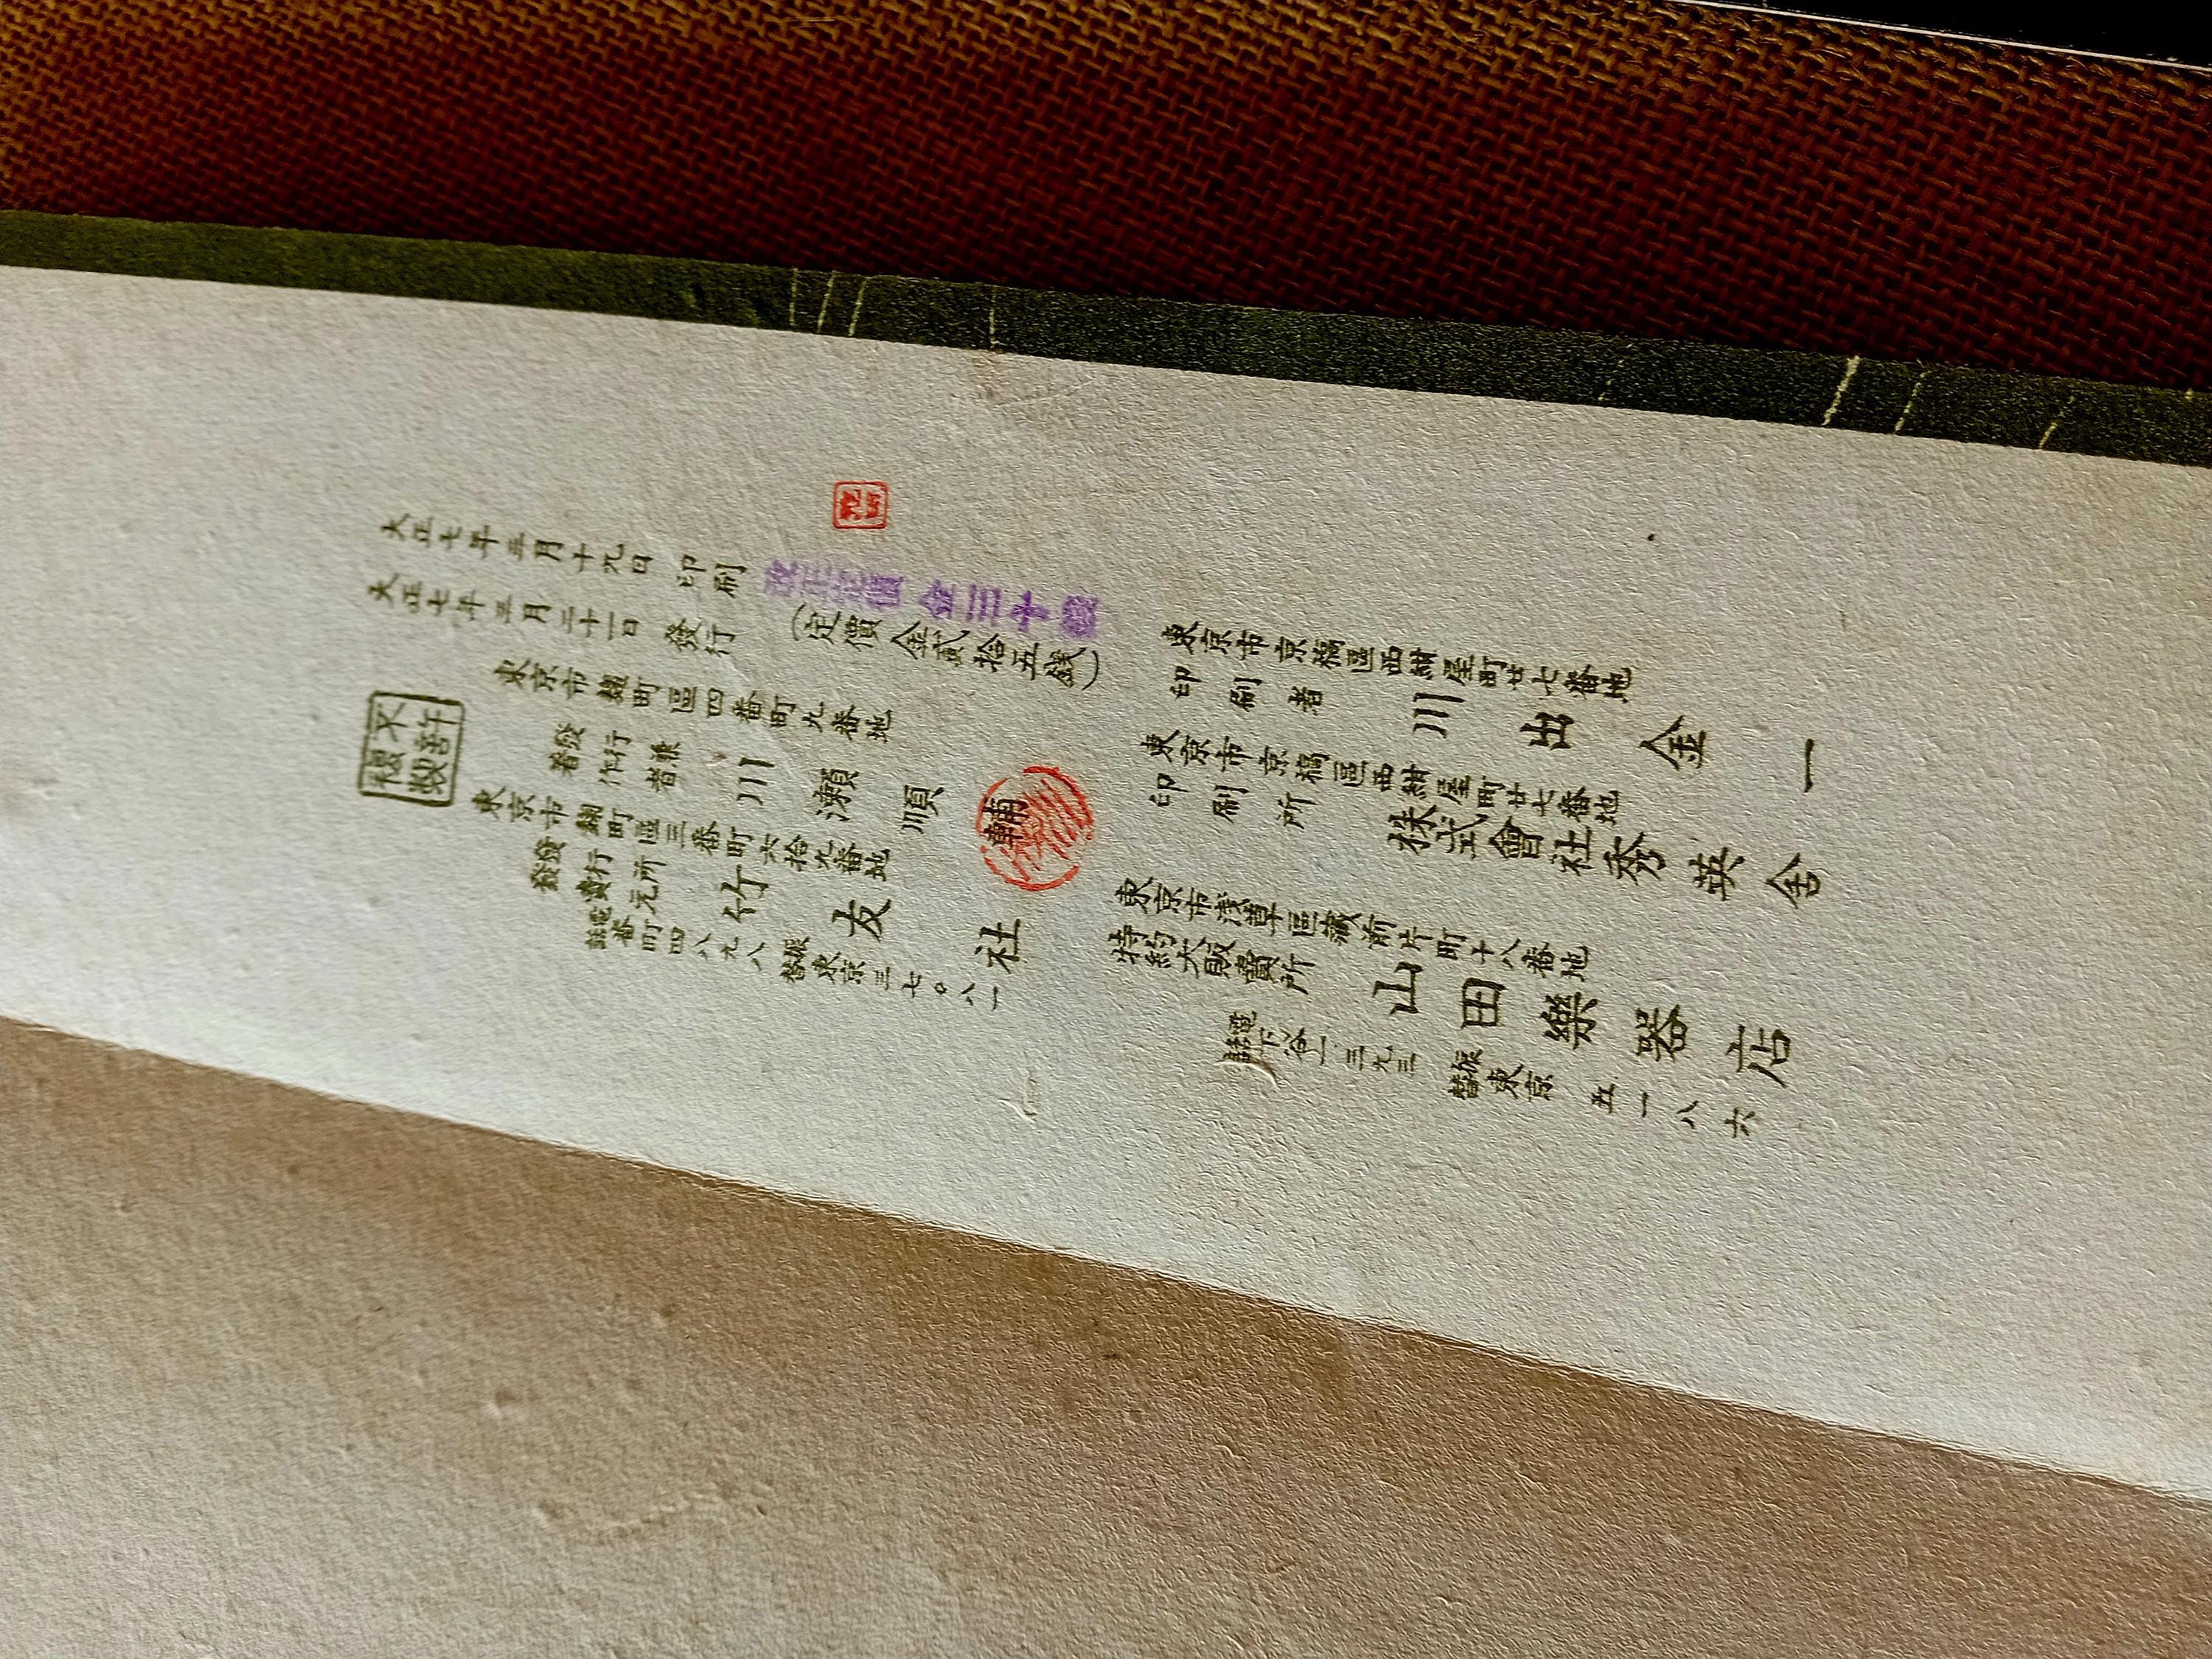 大正七年三月十九日 印刷
大正七年三月二十一日 發行
改正定價 金三十錢
(定價 金貳拾五錢)
不許複製
東京市麹町區四番町九番地
發行兼著作者 川瀬順輔
東京市麹町區三番町六拾九番地
發行所發賣元 竹友社
電話番町四八九八 振替東京三七〇八一
東京市京橋區西紺屋町廿七番地
印刷者 川出金一
東京市京橋區西紺屋町廿七番地
印刷所 株式會社秀英舍
東京市淺草區藏前片町十八番地
特約大販賣所 山田樂器店
電話下谷一三九三 振替東京五一八六